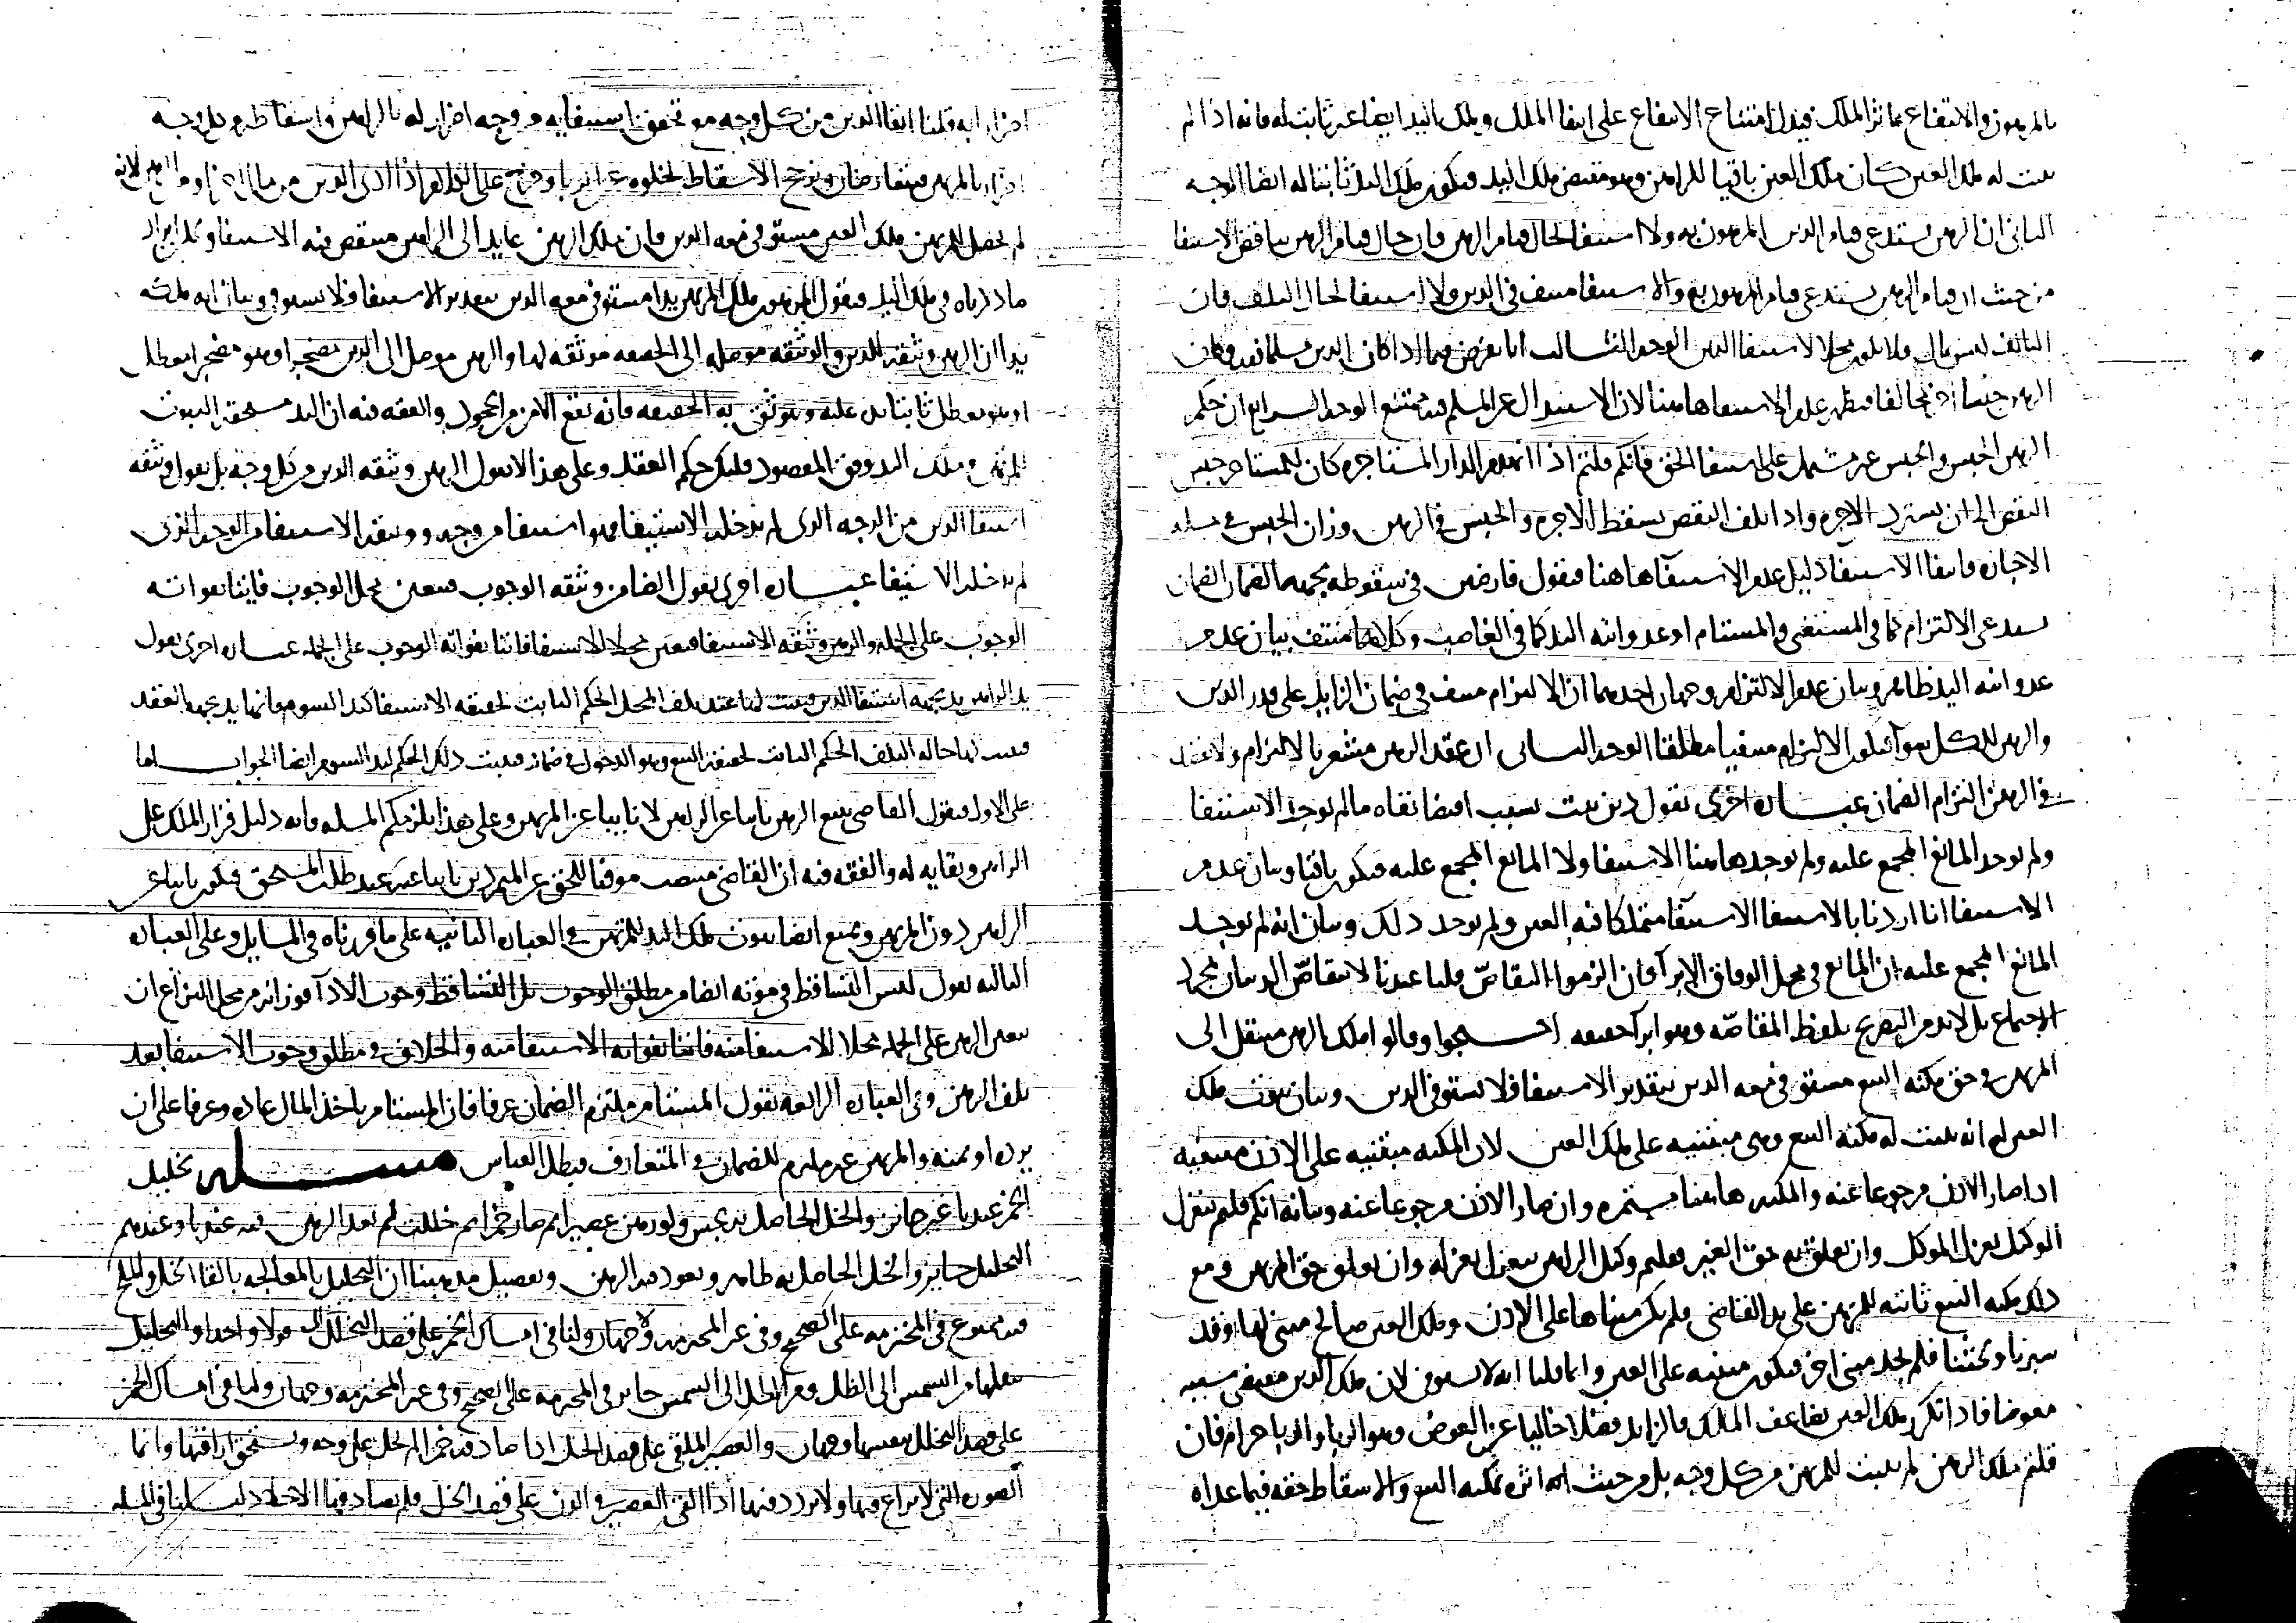 بالمرهون والانتفاع بماثر الملك فيدل امتناع الانتفاع على انتفا الملك وملك اليد ايضا غير ثابت له فانه اذا لم
يثبت له ملك العين كان ملك العين باقيا للراهن وهو مقتضى ملك اليد فيكون ملك اليد ثابتا له ايضا الوجه
الثاني ان الرهن يستدعي قيام الدين المرهون به ولا استيفا لحال قيام الرهن فان حال قيام الرهن ينافض الاستيفا
من حيث ان قيام الرهن يستدعي قيام المرهون به والاستيفا منتف في الدين ولا استيفا لحال التلف فان
التالف ليس بمال فلا يكون محلا لاستيفا الدين الوجه الثالث انا نفرض فيما اذا كان الدين مسلما فيه وكان
الرهن جنسا اخر مخالفا فيظهر عدم الاستيفا هاهنا لان الاستبدال عن المسلم فيه ممتنع الوجه الرابع ان حكم
الرهن الحبس والحبس غير مشتمل على استيفا الحق فانكم قلتم اذا انهدم الدار المستاجره كان للمستاجر حبس
النقض الى ان يسترد الاجره واذا تلف النقض يسقط الاجره والحبس في الرهن وزان الحبس في مسله
الاجاره فانتفا الاستيفا دليل عدم الاستيفا هاهنا فنقول قارضين في سقوطه بجهه الضمان الضمان
يستدعي الالتزام كما في المستعير والمستام او عدوانيه اليد كما في الغاصب وكلاهما منتف بيان عدم
عدوانيه اليد ظاهر وبيان عدم الالتزام وجهان احدهما ان الالتزام منتف في ضمان الزايد على قدر الدين
والرهن للكل هو آ فيكون الالتزام منفيا مطلقا الوجه الثاني ان عقد الرهن مشعر بالالتزام ولا عقد
في الرهن التزام الضمان عباره اخرى نقول دين ثبت بسبب اقتضا بقاه ما لم يوجد الاستيفا
ولم يوجد المانع المجمع عليه ولم يوجد هاهنا الاستيفا ولا المانع المجمع عليه فيكون باقيا وبيان عدم
الاستيفا انا اردنا بالاستيفا الاستيفا متملكا فيه العين ولم يوجد ذلك وبيان انه لم يوجد
المانع المجمع عليه ان المانع في محل الوفاق الابرآ فان الزموا التقاصّ قلنا عندنا لا يتقاصّ الدينان بمجرد
الاجتماع بل لابد من التصريح بلفظ المقاصّه وهو ابرآ حقيقه احتجوا وقالوا ملك الرهن منتقل الى
المرتهن في حق مكنه البيع مستوق في معه الدين بتقدير الاستيفا فلا يستوفي الدين وبيان ثبوت ملك
العين له انه يثبت له مكنه البيع وهي مبتنيه على ملك العين لان المكنه مبتنيه على الاذن منتفيه
اذا صار الاذن مرجوعا عنه والمكنه هاهنا مستمره وان صار الاذن مرجوعا عنه وبيانه انكم قلتم ينعزل
الوكيل بعزل الموكل وان تعلق به حق الغير فعليه وكيل الراهن ينعزل بعزله وان تعلق حق المرتهن ومع
ذلك مكنه البيع ثابته للمرتهن على يد القاضي فلم يكن مبناها على الاذن وملك العين صالح مبنى لها وقد
سبرنا وبحثنا فلم نجد مبنى اخر فيكون مبنيه على العين وانما قلنا انه لا يستوفي لان ملك الدين مقتضى سببه
معوضا فاذا تكرر ملك العين تضاعف الملك فالزايد فضلا خاليا عن العوض وهو الربا والربا حرام فان
قلتم ملك الرهن لم يثبت للمرتهن من كل وجه بل من حيث انه اثره تمكنه البيع والاسقاط حقه فيما عداه
اضرار به قلنا ايفا الدين من كل وجه مع تحقق استيفايه من وجه اضرار له بالراهن واسقاطه من كل وجه
اضرار بالمرتهن فيتعارضان ويترجح الاسقاط لخلوه عن الربا
لم يحصل للمرتهن ملك العين مستوق في معه الدين فان ملك الرهن عايد الى الراهن فينتقض فيه الاستيفا
ما ذكرناه في ملك اليد فنقول المرهون ملك المرتهن يدا مستوفي معه الدين بتقدير الاستيفا فلا يستوفي وبيان انه ملكه
يدا ان الرهن وثيقه للدين والوثيقه موصله الى الحقيقه موثقه لها والرهن موصل الى الدين مضجر او هو مضجر معطل
او هو معطل ثابتا يدل عليه وموثق به الحقيقه فانه يقع الامن من الجحود والفقه فيه ان اليد مستحقه الثبوت
للمرتهن وملك اليد وفق المقصود فليكن حكم العقد وعلى هذا لا نقول الرهن وثيقه الدين من كل وجه بل نقول وثيقه
استيفا الدين من الوجه الذي لم يدخله الاستيفا فهو استيفا من وجه ووثيقه الاستيفا من الوجه الذي
لم يدخله الاستيفا عباره اخرى نقول الضامن وثيقه الوجوب فتعين محل الوجوب فايتا بفواته
الوجوب على الجمله والرهن وثيقه الاستيفا فتعين محلا للاستيفا فايتا بفواته الوجوب على الجمله عباره اخرى نقول
يد الراهن يد بجهه استيفا الدين فيثبت لها عند تلف المحل الحكم الثابت لحقيقه الاستيفا كيد السوم فانها يد بجهه العقد
فيثبت لها حاله التلف الحكم الثابت لحقيقه البيع وهو الدخول في ضمانه فيثبت ذلك الحكم ليد السوم ايضا الجواب اما
على الاول فنقول القاضي يبيع الرهن نايبا عن الراهن لا نايبا عن المرتهن وعلى هذا يلزمكم المسله فانه دليل قرار الملك على
الراهن وبقايه له والفقه فيه ان القاضي منتصب موفيا للحق عن المتمردين نايبا عنهم عند طلب المستحق فيكون نايبا عن
الراهن دون المرتهن ونمنع ايضا ثبوت ملك اليد للمرتهن في العباره الثانيه على ما قررناه في المسايل وعلى العباره
الثالثه نقول ليس التساقط في موته ايضا من مطلق الوجوب بل التساقط وجوب الادآ فوزانه من محل النزاع ان
تعين الرهن على الجمله محلا للاستيفا منه فايتا بفواته الاستيفا منه والخلاف في مطلق وجوب الاستيفا بعد
تلف الرهن وفي العباره الرابعه نقول المستام ملتزم الضمان عرفا فان المستام ياخذ المال عاده وعرفا على ان
يرده او ثمنه والمرتهن غير ملتزم للضمان في المتعارف فبطل القياس مسله تخليل
الخمر عندنا غير جايز والخل الحاصل به نجس ولو رهن عصيرا ثم صار خمرا ثم خللت لم يعد الرهن فيه عندنا وعندهم
التخليل جايز والخل الحاصل به طاهر ويعود فيه الرهن وتفصيل مذهبنا ان التخليل بالمعالجه بالقا الخل والملح
فيه ممنوع في المحترمه على الصحيح وفي غير المحترمه وجهان ولنا في امساك الخمر على قصد التخلل قولا واحدا والتخليل
بنقلها من الشمس الى الظل ومن الظل الى الشمس جايز في المحترمه على الصحيح وفي غير المحترمه وجهان ولنا في امساك الخمر
على قصد التخلل بنفسها وجهان والعصير الملقى على قصد الخل اذا صادف خمرا لم تخل على وجه ويستحق اراقتها وانما
الصوره التي لا نزاع فيها ولا تردد فيها اذا القى العصير في الدن على قصد الخل فلم يصادفها الاخلا دليلنا في المسله